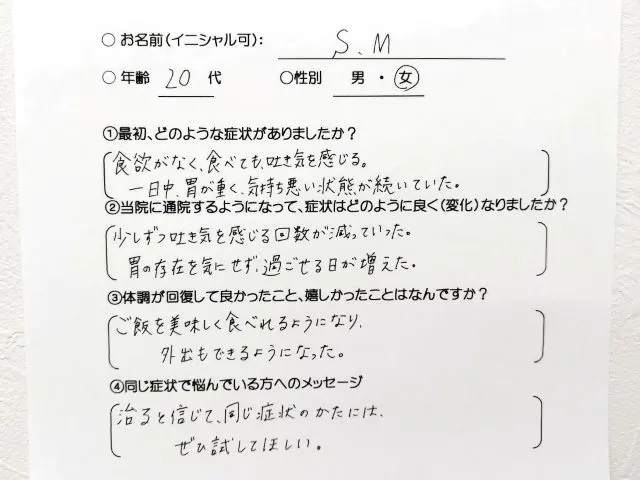 ○ お名前(イニシャル可): S.M
○ 年齢 20 代 ○性別 男 ・ 女
①最初、どのような症状がありましたか?
食欲がなく、食べても、吐き気を感じる。
一日中、胃が重く、気持ち悪い状態が続いていた。
②当院に通院するようになって、症状はどのように良く(変化)なりましたか?
少しずつ吐き気を感じる回数が減っていった。
胃の存在を気にせず、過ごせる日が増えた。
③体調が回復して良かったこと、嬉しかったことはなんですか?
ご飯を美味しく食べれるようになり、
外出もできるようになった。
④同じ症状で悩んでいる方へのメッセージ
治ると信じて、同じ症状のかたには、
ぜひ試してほしい。